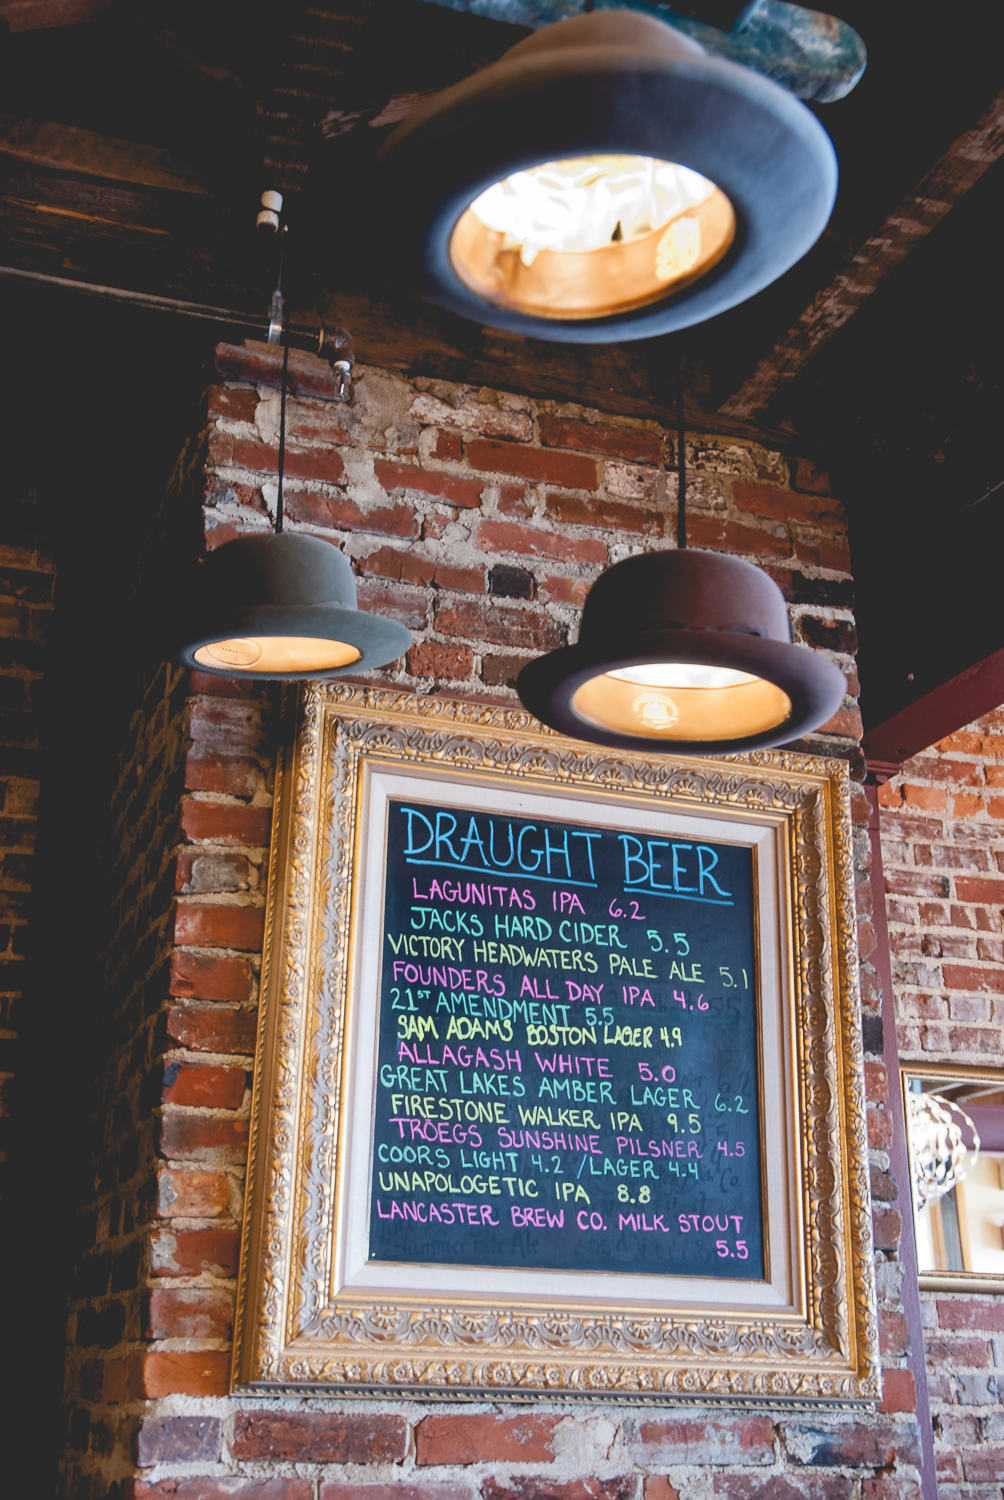 DRAUGHT BEER
LAGUNITAS IPA 6.2
JACKS HARD CIDER 5.5
VICTORY HEADWATERS PALE ALE 5.1
FOUNDERS ALL DAY IPA 4.6
21ST AMENDMENT 5.5
SAM ADAMS BOSTON LAGER 4.9
ALLAGASH WHITE 5.0
GREAT LAKES AMBER LAGER 6.2
FIRESTONE WALKER IPA 9.5
TRÖEGS SUNSHINE PILSNER 4.5
COORS LIGHT 4.2 /LAGER 4.4
UNAPOLOGETIC IPA 8.8
LANCASTER BREW CO. MILK STOUT
5.5